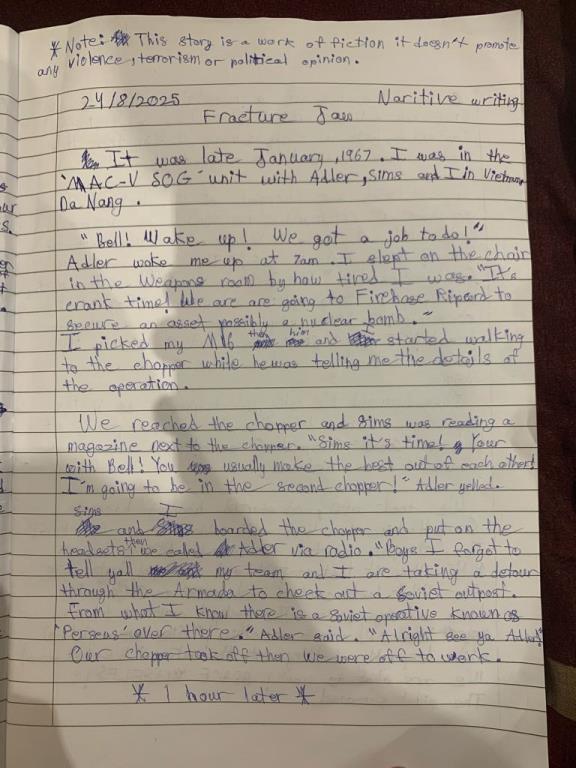 * Note: This story is a work of fiction it doesn't promote
any violence, terrorism or political opinion.
24/8/2025 Naritive writing
Fracture Jaw
It was late January, 1967. I was in the
"MAC-V SOG" unit with Adler, Sims and I in Vietnam,
Da Nang.
"Bell! Wake up! We got a job to do!"
Adler woke me up at 7am. I slept on the chair
in the Weapons room by how tired I was. "It's
crank time! We are are going to Firebase Ripcord to
secure an asset possibly a nuclear bomb."
I picked my M16 then and started walking
to the chopper while he was telling me the details of
the operation.
We reached the chopper and Sims was reading a
magazine next to the chopper. "Sims it's time! Your
with Bell! You usually make the best out of each other!
I'm going to be in the second chopper!" Adler yelled.
Sims and I boarded the chopper and put on the
headsets then we called Adler via radio. "Boys I forgot to
tell yall my team and I are taking a detour
through the Armada to check out a Soviet outpost.
From what I know there is a Soviet operative known as
"Perseus" over there." Adler said. "Alright see ya Adler!"
Our chopper took off then we were off to work.
* 1 hour later *